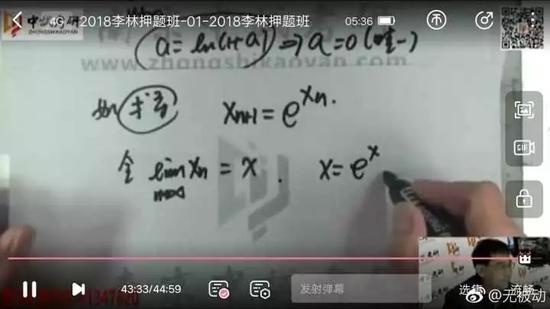 4G 2018李林押题班-01-2018李林押题班 05:36
a=ln(1+a) ⇒ a=0(唯一)
www.zhongshikaoyan.com
如 Xn+1=e^Xn.
令 lim n→∞ Xn = X. X=e^x
43:33/44:59 发射弹幕 选集 流畅
@无被动